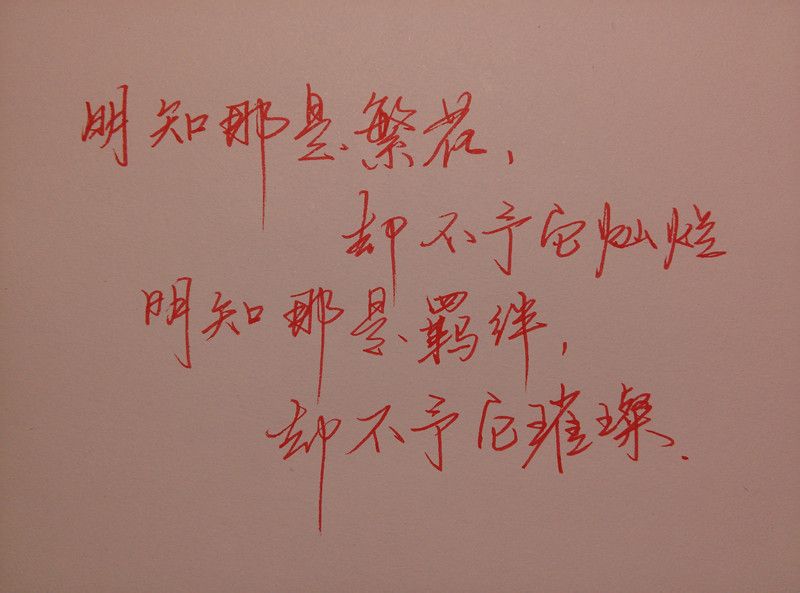 明知那是繁花,
却不予它灿烂
明知那是羁绊,
却不予它璀璨.